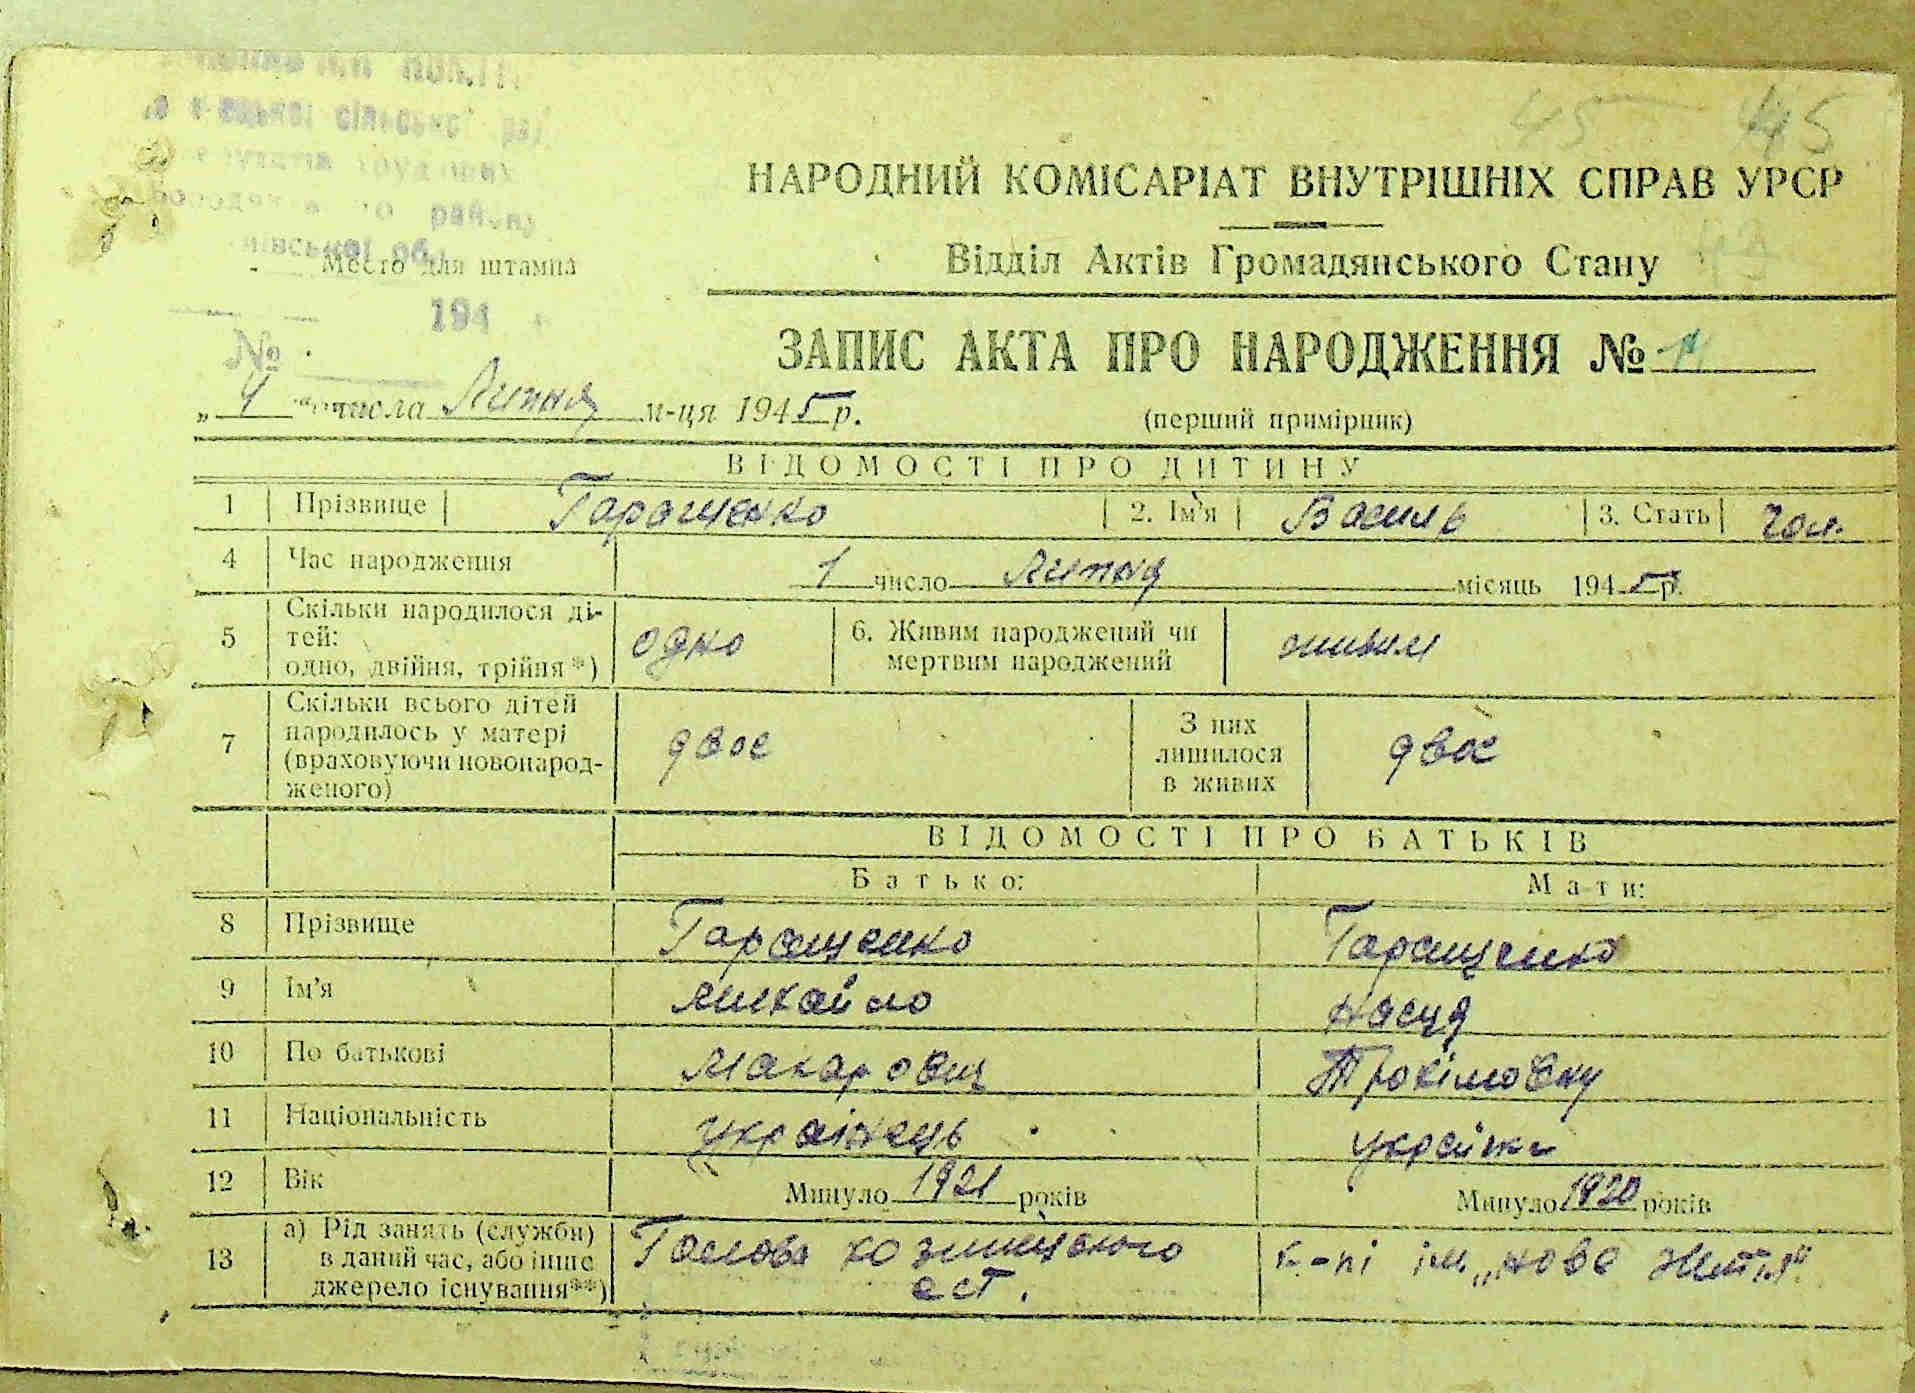 45 45
сільської
району
обл
НАРОДНИЙ КОМІСАРІАТ ВНУТРІШНІХ СПРАВ УРСР
Відділ Актів Громадянського Стану 43
Место для штампа
194
№
ЗАПИС АКТА ПРО НАРОДЖЕННЯ № 11
„ 4 " числа Липня м-ця 1945 р.
(перший примірник)
ВІДОМОСТІ ПРО ДИТИНУ
1 Прізвище Таращенко 2. Ім'я Василь 3. Стать чол.
4 Час народження 1 число Липня місяць 1945 р.
5 Скільки народилося ді-
тей:
одно, двійня, трійня*) одно 6. Живим народжений чи
мертвим народжений живим
7 Скільки всього дітей
народилось у матері
(враховуючи новонарод-
женого) двоє З них
лишилося
в живих двоє
ВІДОМОСТІ ПРО БАТЬКІВ
Батько: Мати:
8 Прізвище Таращенко Таращенко
9 Ім'я Михайло Насця
10 По батькові Макарович Трохімовну
11 Національність українець украінка
12 Вік Минуло 1921 років Минуло 1920 років
13 а) Рід занять (служби)
в даний час, або інше
джерело існування**) Голова
к-пі ім. „нове життя"